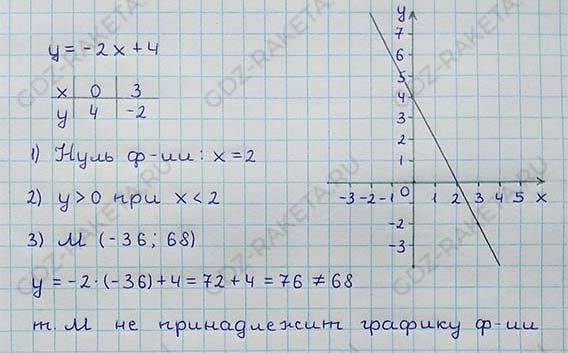 y = -2x + 4
x 0 3
y 4 -2
1) Нуль ф-ии: x = 2
2) y > 0 при x < 2
3) М (-36; 68)
y = -2·(-36) + 4 = 72 + 4 = 76 ≠ 68
т. М не принадлежит графику ф-ии
y
7
6
5
4
3
2
1
-3 -2 -1 0 1 2 3 4 5 x
-2
-3
GDZ-RAKETA.RU